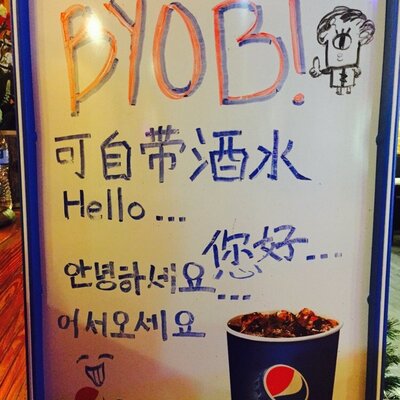 BYOB!
可自带酒水
Hello...
您好...
안녕하세요...
어서오세요